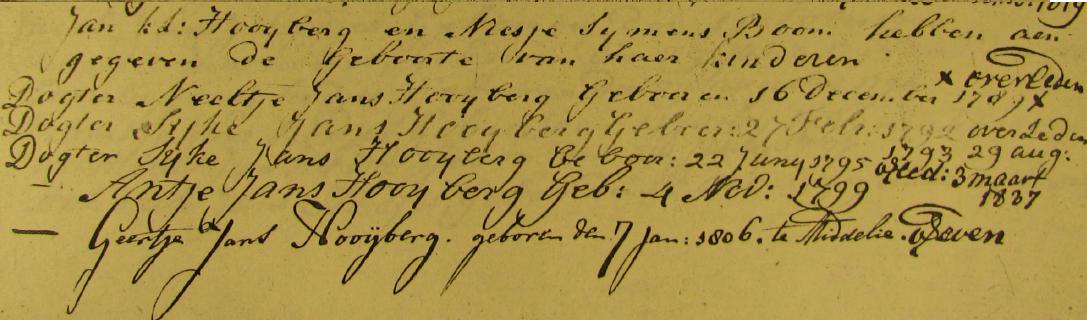 Jan kl: Hooyberg en Niesje Symens Boom hebben aen
gegeven de Geboorte van haer kinderen
x overleden
Dogter Neeltje Jans Hooyberg Geboren 16 December 1789 x
Dogter Syke Jans Hooyberg Geboor: 27 Febr: 1792 overleden
1793 29 aug:
Dogter Syke Jans Hooyberg Geboor: 22 Juny 1795
3 maart
1837
— Antje Jans Hooyberg Geb: 4 Nov: 1799
— Geertje Jans Hooÿberg. geboren den 7 Jan: 1806. te Middelie.